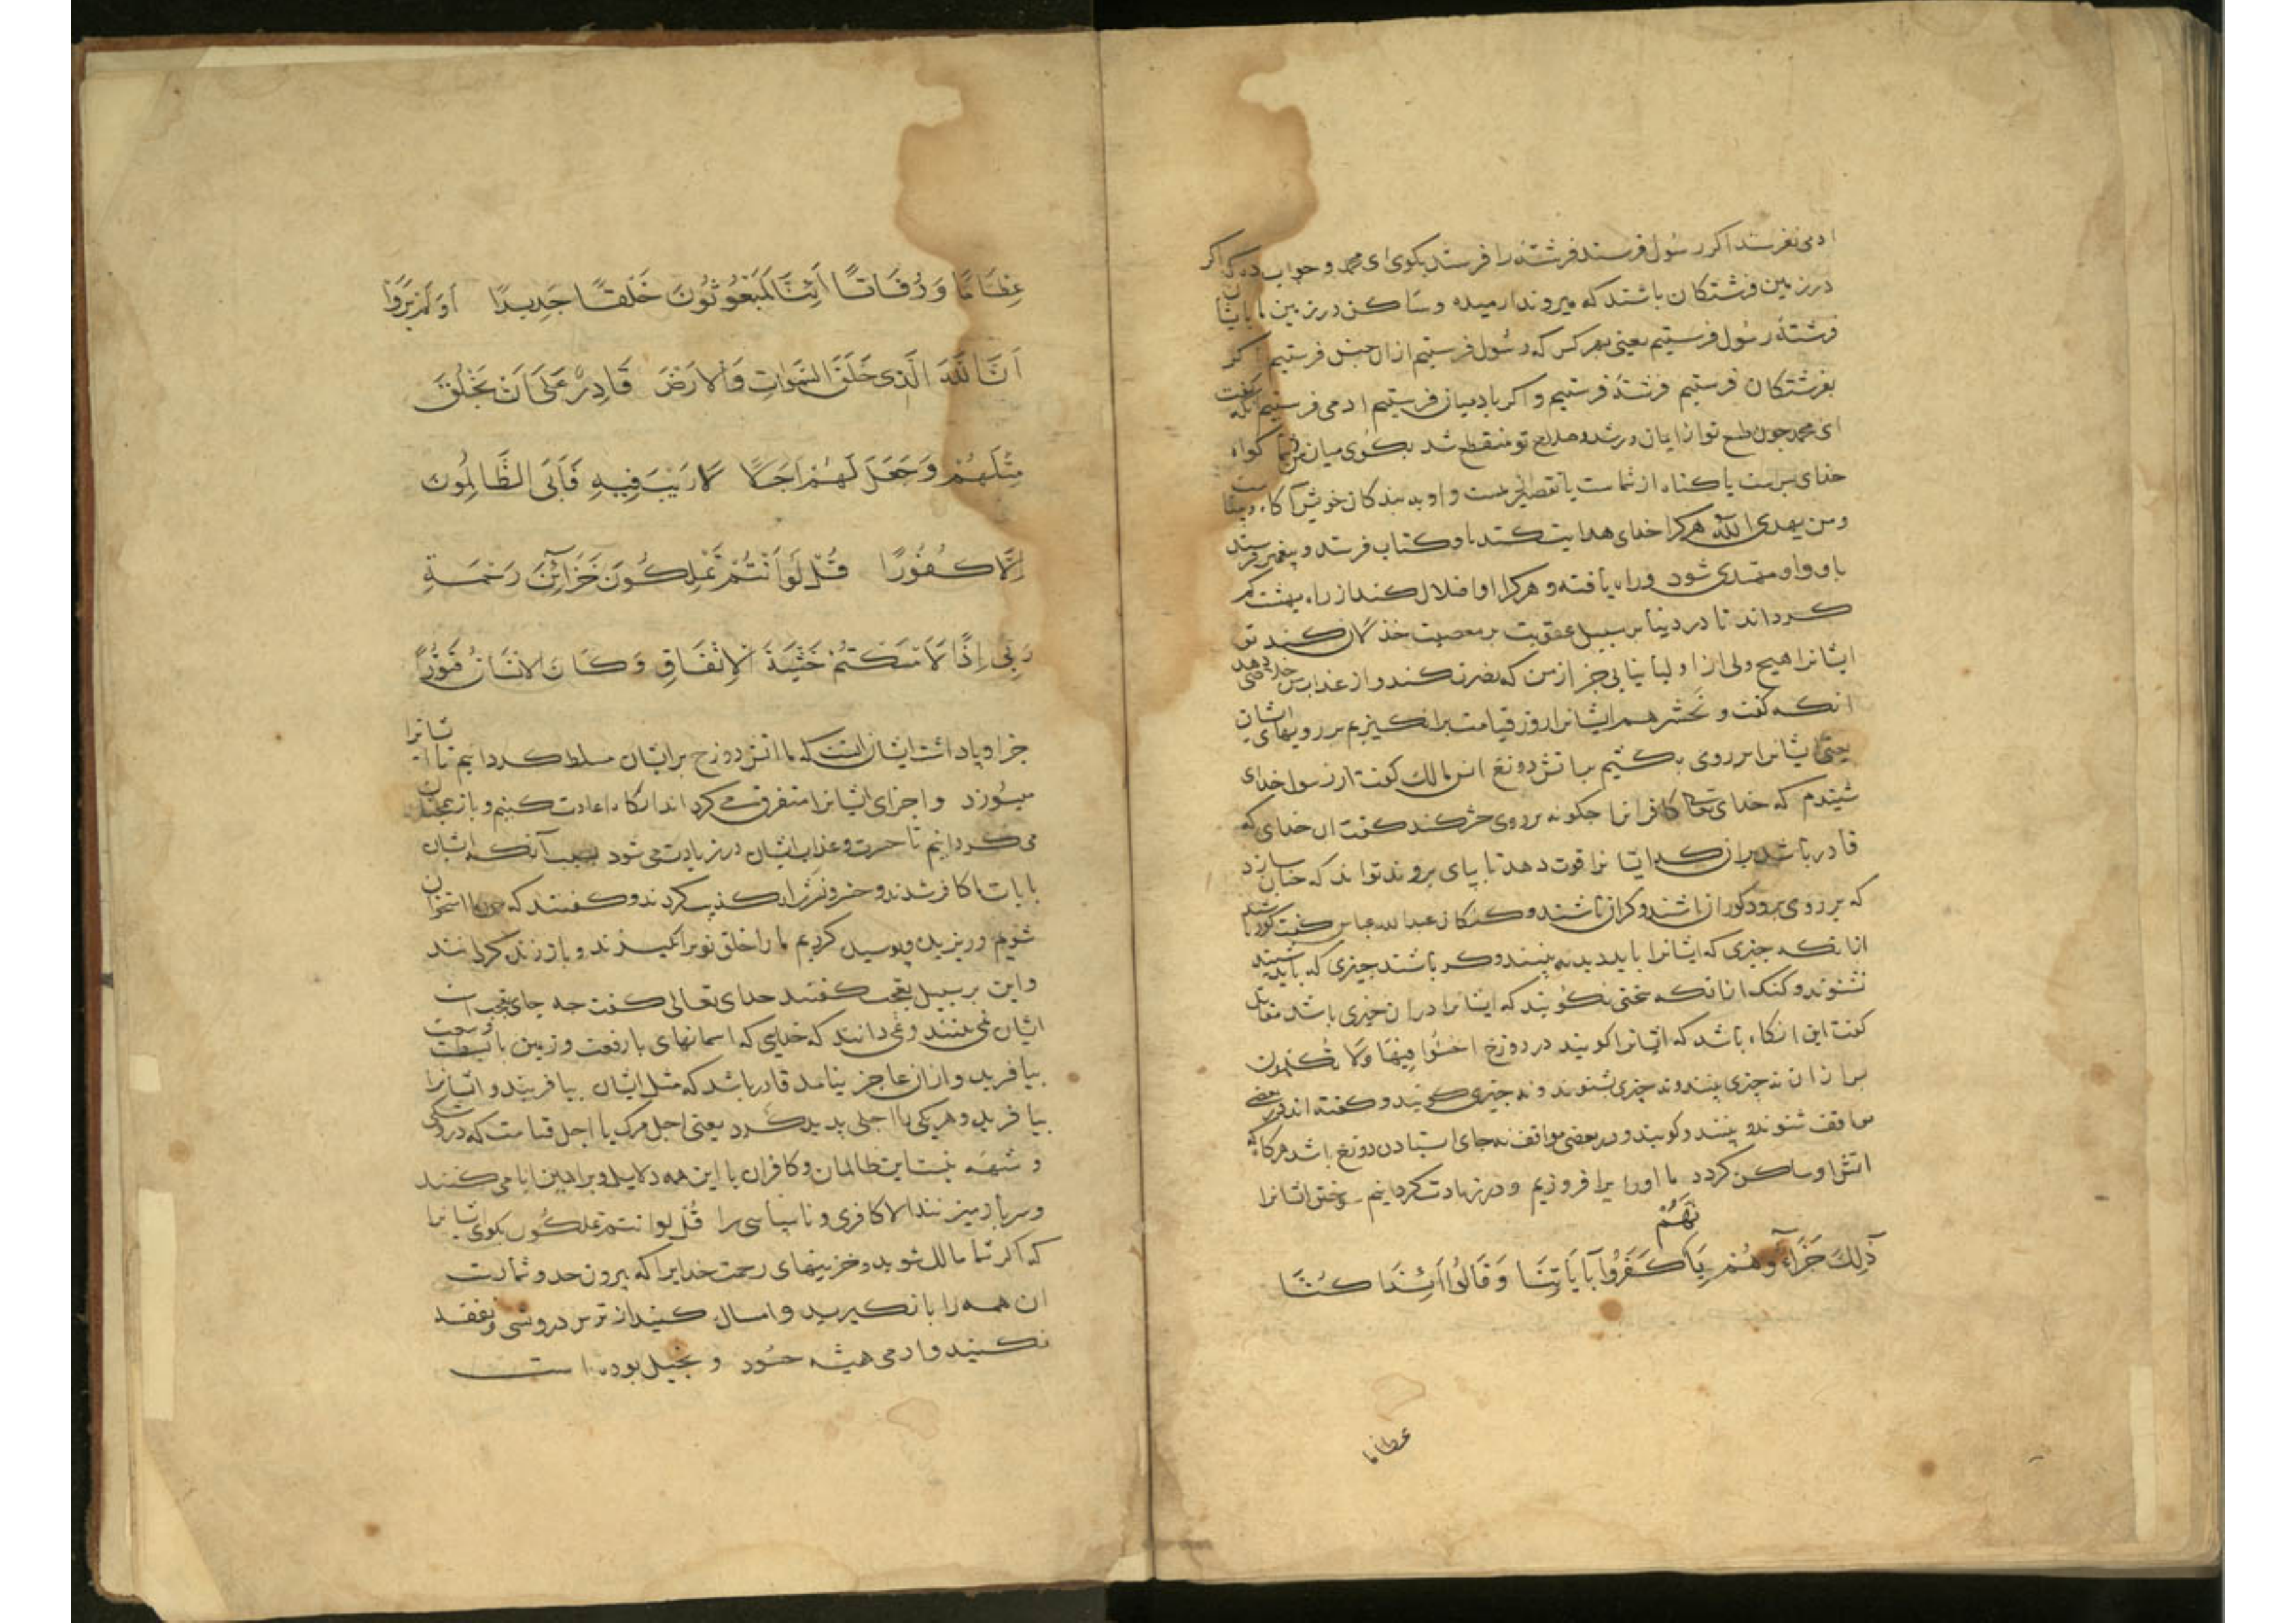 ادمی نفرستد اکر رسول فرستد فرشته را فرستد بکوی ای محمد و جواب ده که اکر
در زمین فرشتکان باشند که میروند ارمیده و ساکن در زمین ما بایشان
فرشته رسول فرستیم یعنی بهر کس که رسول فرستیم از ان جنس فرستیم اکر
بفرشتکان فرستیم فرشته فرستیم و اکر بادمیان فرستیم ادمی فرستیم انکه کفت
ای محمد جون طمع تو از ایمان و رشد و صلاح تو منقطع شد بکوی میان من و شما کواه
خدای بس است یا کناه از شماست یا تقصیر از منست و او به بندکان خویش آکاه و بیناست
ومن یهدی الله هرکرا خدای هدایت کند با و کتاب فرستد و پیغمبر فرستد
باو و او مهتدی شود و راه یافته و هرکرا او اضلال کند از راه بهشت کم
کرداند تا در دنیا بر سبیل عقوبت بر معصیت خذلان کند تو
ایشانرا هیچ ولی از اولیا نیابی جز از من که نصرت کند و از عذاب من خلاصی دهد
انکه کفت و نحشرهم ایشانرا روز قیامت برانکیزیم بر رویهای ایشان
یعنی ایشانرا بر روی بکشیم باتش دوزخ انس مالک کفت از رسول خدای
شنیدم که خدای تعالی کافرانرا جکونه بر روی حشر کند کفت ان خدای که
قادر باشد بر انکه ایشانرا قوت دهد تا بپای بروند تواند که جنان سازد
که بر روی برود کوران باشند و کران باشند و کنکان عبدالله عباس کفت کور باشند
از انکه جیزی که ایشانرا باید دید نه بینند و کر باشند جیزی که باید شنید
نشنوند و کنک از انکه سخنی نکویند که ایشانرا در ان خیری باشد مقاتل
کفت این انکاه باشد که ایشانرا کویند در دوزخ اخسؤا فیها ولا تکلمون
بر از ان نه جیزی بینند و نه جیزی بشنوند و نه جیزی کویند و کفته اند در بعضی
مواقف شنوند و بینند و کویند و در بعضی مواقف نه جای استادن دوزخ باشد هرکاه که
اتش او ساکن کردد ما اورا برافروزیم و در زیادت کردانیم سوختن ایشانرا
ذٰلِكَ جَزَاۤؤُهُمْ بِاَنَّهُمْ كَفَرُوا بِآيَاتِنَا وَقَالُوا اَئِذَا كُنَّا
عظاما
عِظَامًا وَرُفَاتًا اَئِنَّا لَمَبْعُوثُونَ خَلْقًا جَدِيدًا اَوَلَمْ يَرَوْا
اَنَّ اللّٰهَ الَّذِى خَلَقَ السَّمٰوَاتِ وَالْاَرْضَ قَادِرٌ عَلٰى اَنْ يَخْلُقَ
مِثْلَهُمْ وَجَعَلَ لَهُمْ اَجَلًا لَا رَيْبَ فِيهِ فَاَبَى الظَّالِمُونَ
اِلَّا كُفُورًا قُلْ لَوْ اَنْتُمْ تَمْلِكُونَ خَزَاۤئِنَ رَحْمَةِ
رَبِّى اِذًا لَاَمْسَكْتُمْ خَشْيَةَ الْاِنْفَاقِ وَكَانَ الْاِنْسَانُ قَتُورًا
جزا و پاداشت ایشان انست که ما اتش دوزخ بر ایشان مسلط کردانیم تا ایشانرا
میسوزد و اجزای ایشانرا متفرق می کرداند انکاه اعادت کنیم و باز بجمله
می کردانیم تا حسرت و عذاب ایشان در زیادت می شود بسبب آنکه ایشان
بایات ما کافر شدند و حشر و نشر را تکذیب کردند و کفتند که جون ما استخوان
شویم و ریزیده و پوسیده کردیم ما را خلق نو برانکیزند و باز زنده کردانند
و این بر سبیل تعجب کفتند خدای تعالی کفت جه جای تعجب است
ایشان نمی بینند و نمی دانند که خدایی که اسمانهای با رفعت و زمین با بسطت و سعت
بیافرید و از ان عاجز نیامد قادر باشد که مثل ایشان بیافریند و ایشانرا
بیافرید و هر یکی را اجلی پدید کرد یعنی اجل مرک یا اجل قیامت که در و شکی
و شبهه نیست این ظالمان و کافران با این همه دلایل و براهین ابا می کنند
و سر باز میزنند الا کافری و ناسپاسی را قُل لو انتم تملکون بکوی ایشانرا
که اکر شما مالک شوید و خزینهای رحمت خدایرا که بیرون حد و شمارست
ان همه را بازکیرید و امساک کنید از ترس درویشی و نفقه
نکنید و ادمی همیشه حسود و بخیل بوده است